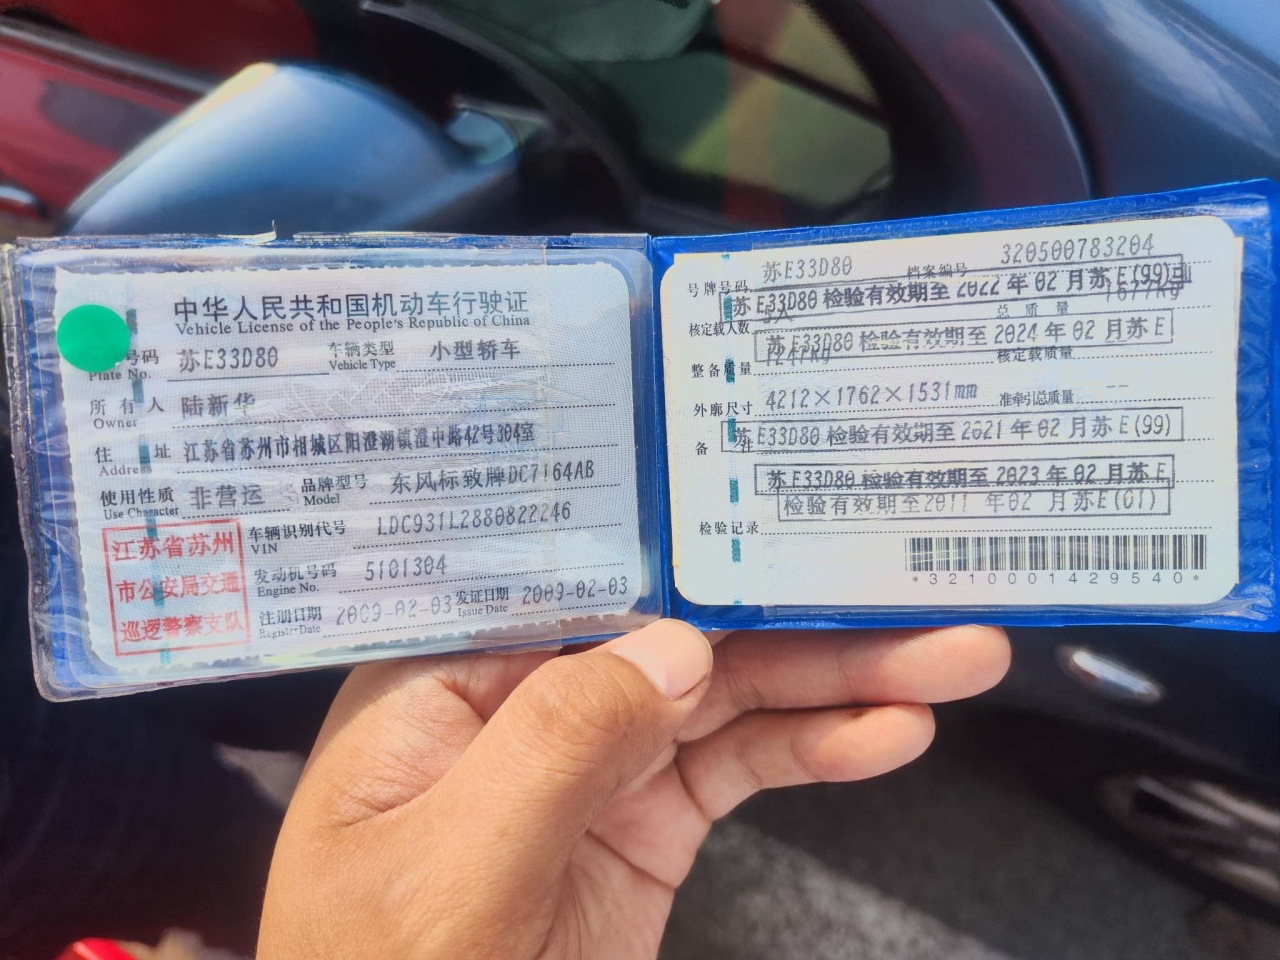 中华人民共和国机动车行驶证
Vehicle License of the People's Republic of China
号码 苏E33D80 车辆类型 小型轿车
Plate No. Vehicle Type
所有人 陆新华
Owner
住址 江苏省苏州市相城区阳澄湖镇澄中路42号304室
Address
使用性质 非营运 品牌型号 东风标致牌DC7164AB
Use Character Model
江苏省苏州
市公安局交通
巡逻警察支队
车辆识别代号 LDC931L2880822246
VIN
发动机号码 5101304
Engine No.
注册日期 2009-02-03 发证日期 2009-02-03
Register Date Issue Date
号牌号码 苏E33D80 档案编号 320500783204
苏E33D80 检验有效期至 2022 年 02 月苏E(99)
核定载人数 5人 总质量 1677kg
苏E33D80 检验有效期至 2024 年 02 月苏E
整备质量 核定载质量
外廓尺寸 4212×1762×1531mm 准牵引总质量 --
备注 苏E33D80 检验有效期至 2021 年 02 月苏E(99)
苏E33D80 检验有效期至 2023 年 02 月苏E
检验有效期至2011 年02 月苏E(01)
检验记录
*3210001429540*